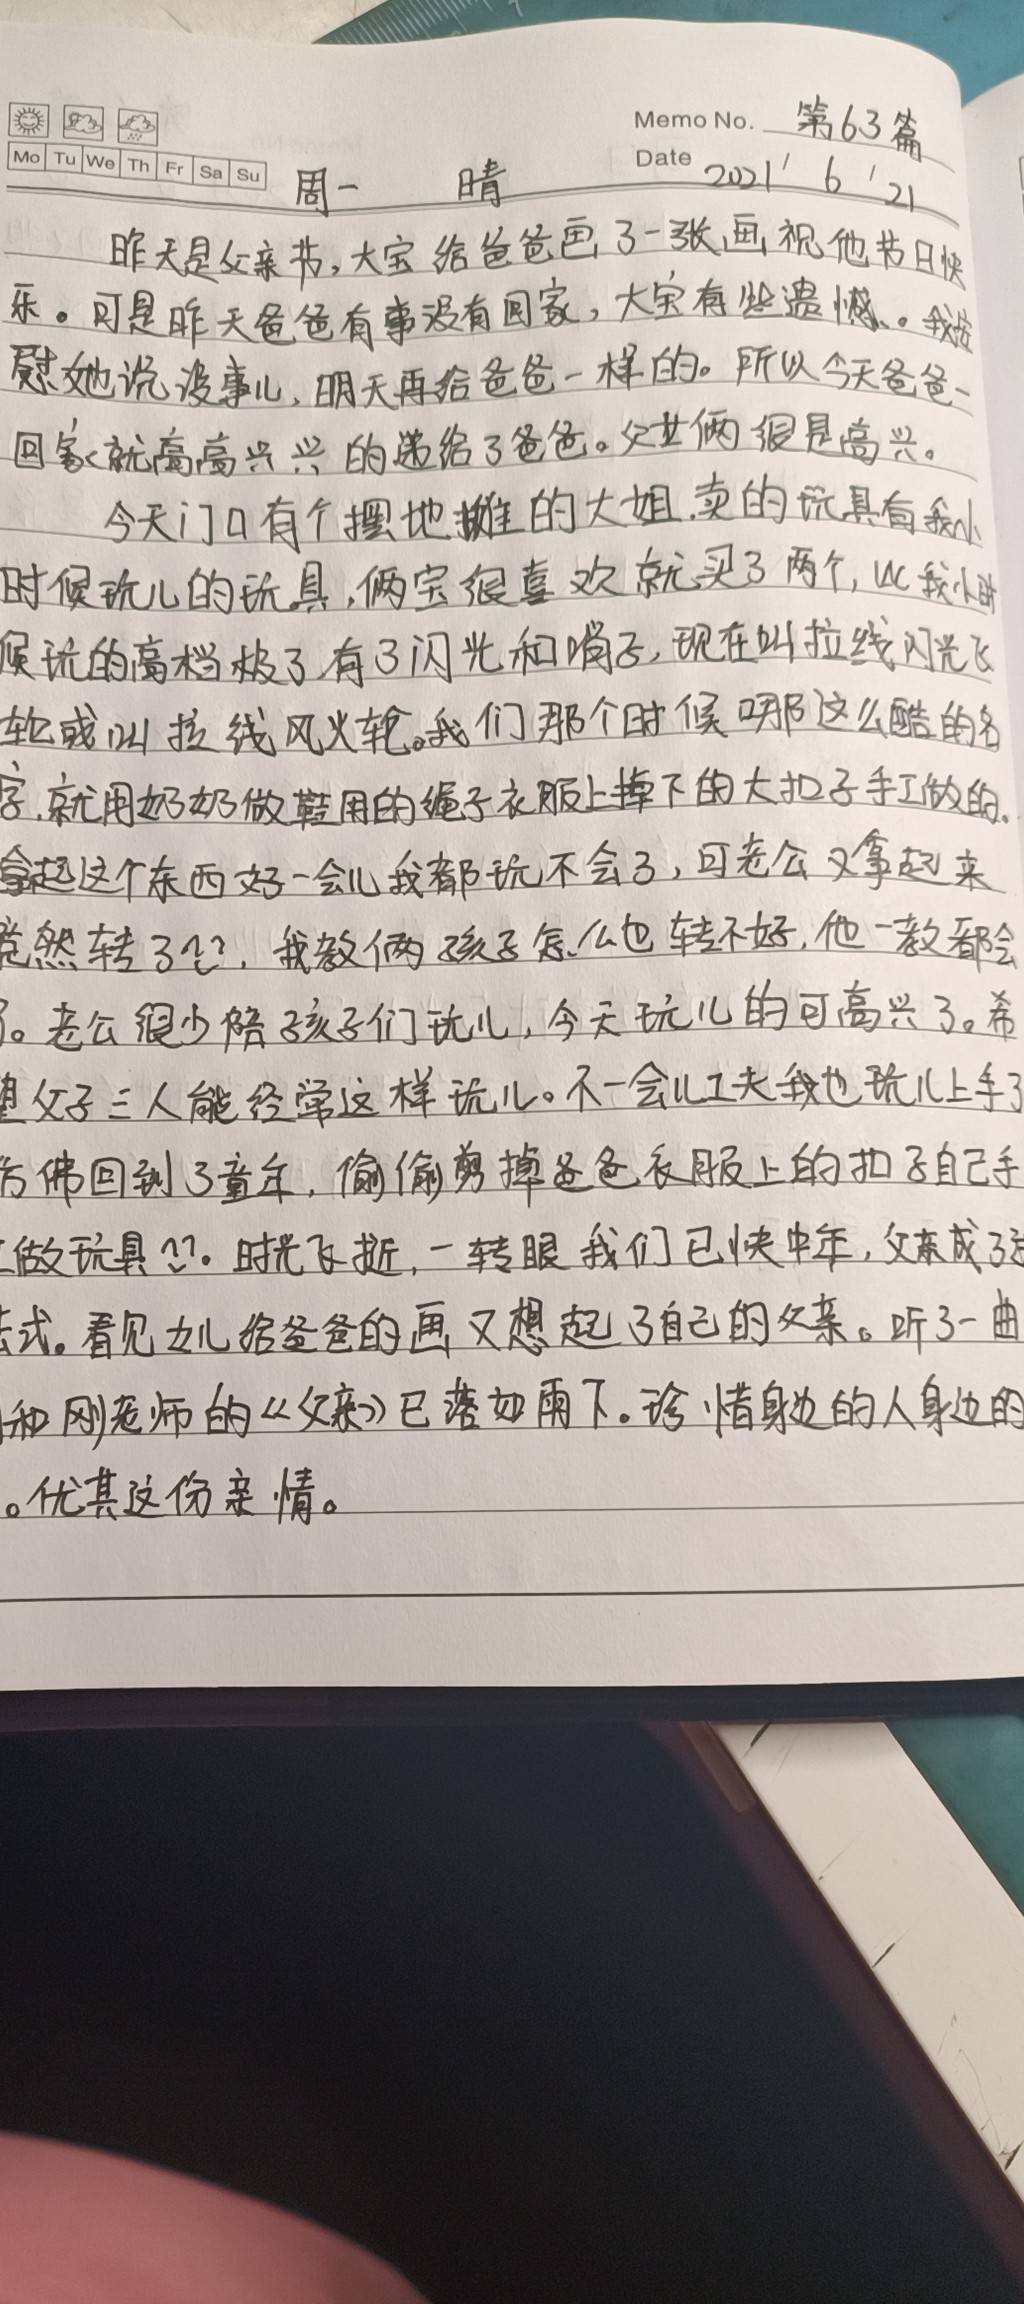 Memo No. 第63篇
Mo Tu We Th Fr Sa Su
Date 2021' 6 '21
周一 晴
昨天是父亲节,大宝给爸爸画了一张画祝他节日快
乐。可是昨天爸爸有事没有回家,大宝有些遗憾。我安
慰她说没事儿,明天再给爸爸一样的。所以今天爸爸一
回家就高高兴兴的递给了爸爸。父女俩很是高兴。
今天门口有个摆地摊的大姐,卖的玩具有我小
时候玩儿的玩具,俩宝很喜欢就买了两个,比我小时
候玩的高档极了,有了闪光和哨子,现在叫拉线闪光飞
轮或叫拉线风火轮。我们那个时候哪这么酷的名
字,就用奶奶做鞋用的绳子衣服上掉下的大扣子手工做的。
拿起这个东西好一会儿我都玩不会了,可老公又拿起来
竟然转了,我教俩孩子怎么也转不好,他一教都会
了。老公很少陪孩子们玩儿,今天玩儿的可高兴了。希
望父子三人能经常这样玩儿。不一会儿工夫我也玩儿上手了
仿佛回到了童年,偷偷剪掉爸爸衣服上的扣子自己手
工做玩具。时光飞逝,一转眼我们已快中年,父亲成了
式。看见女儿给爸爸的画又想起了自己的父亲。听了一曲
和刚老师的《父亲》已落如雨下。珍惜身边的人身边的
。优其这份亲情。